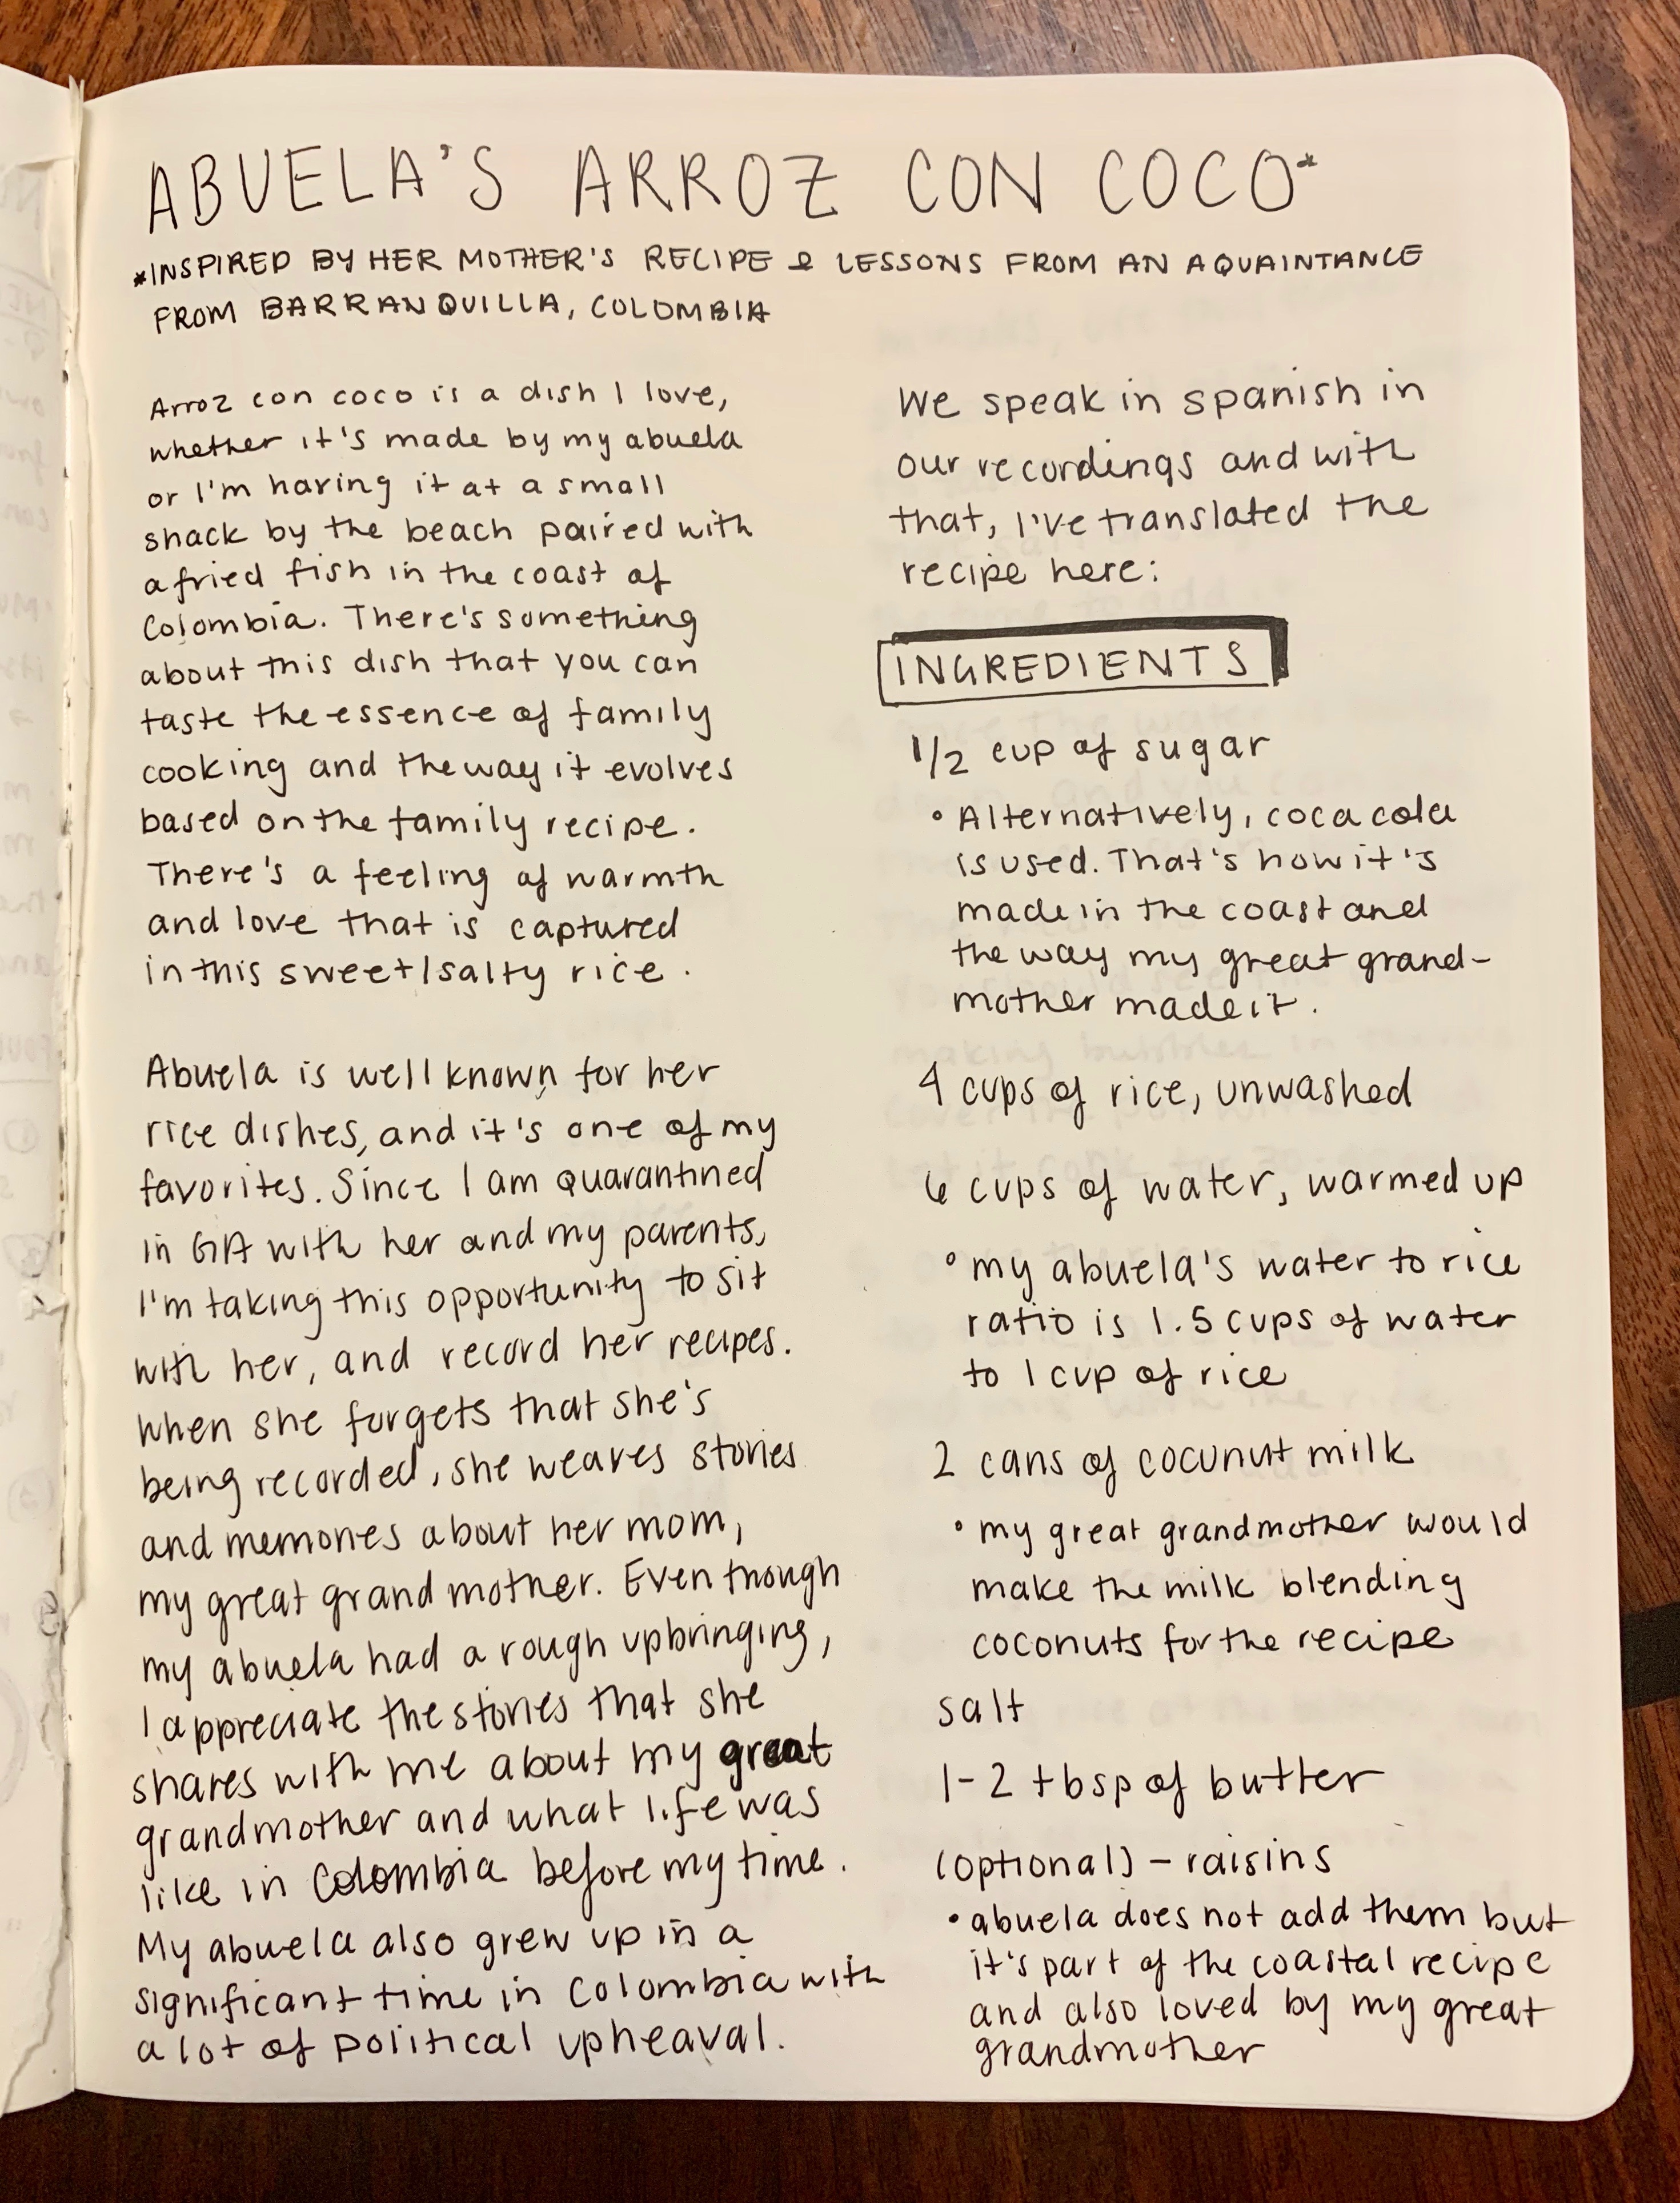 ABUELA'S ARROZ CON COCO*
*INSPIRED BY HER MOTHER'S RECIPE & LESSONS FROM AN AQUAINTANCE
FROM BARRANQUILLA, COLOMBIA
Arroz con coco is a dish I love,
whether it's made by my abuela
or I'm having it at a small
shack by the beach paired with
a fried fish in the coast of
Colombia. There's something
about this dish that you can
taste the essence of family
cooking and the way it evolves
based on the family recipe.
There's a feeling of warmth
and love that is captured
in this sweet/salty rice.
Abuela is well known for her
rice dishes, and it's one of my
favorites. Since I am quarantined
in GA with her and my parents,
I'm taking this opportunity to sit
with her, and record her recipes.
When she forgets that she's
being recorded, she weaves stories
and memories about her mom,
my great grandmother. Even though
my abuela had a rough upbringing,
I appreciate the stories that she
shares with me about my great
grandmother and what life was
like in Colombia before my time.
My abuela also grew up in a
significant time in Colombia with
a lot of political upheaval.
We speak in spanish in
our recordings and with
that, I've translated the
recipe here:
INGREDIENTS
1/2 cup of sugar
• Alternatively, coca cola
is used. That's how it's
made in the coast and
the way my great grand-
mother made it.
4 cups of rice, unwashed
6 cups of water, warmed up
• my abuela's water to rice
ratio is 1.5 cups of water
to 1 cup of rice
2 cans of coconut milk
• my great grandmother would
make the milk blending
coconuts for the recipe
salt
1-2 tbsp of butter
(optional) - raisins
• abuela does not add them but
it's part of the coastal recipe
and also loved by my great
grandmother